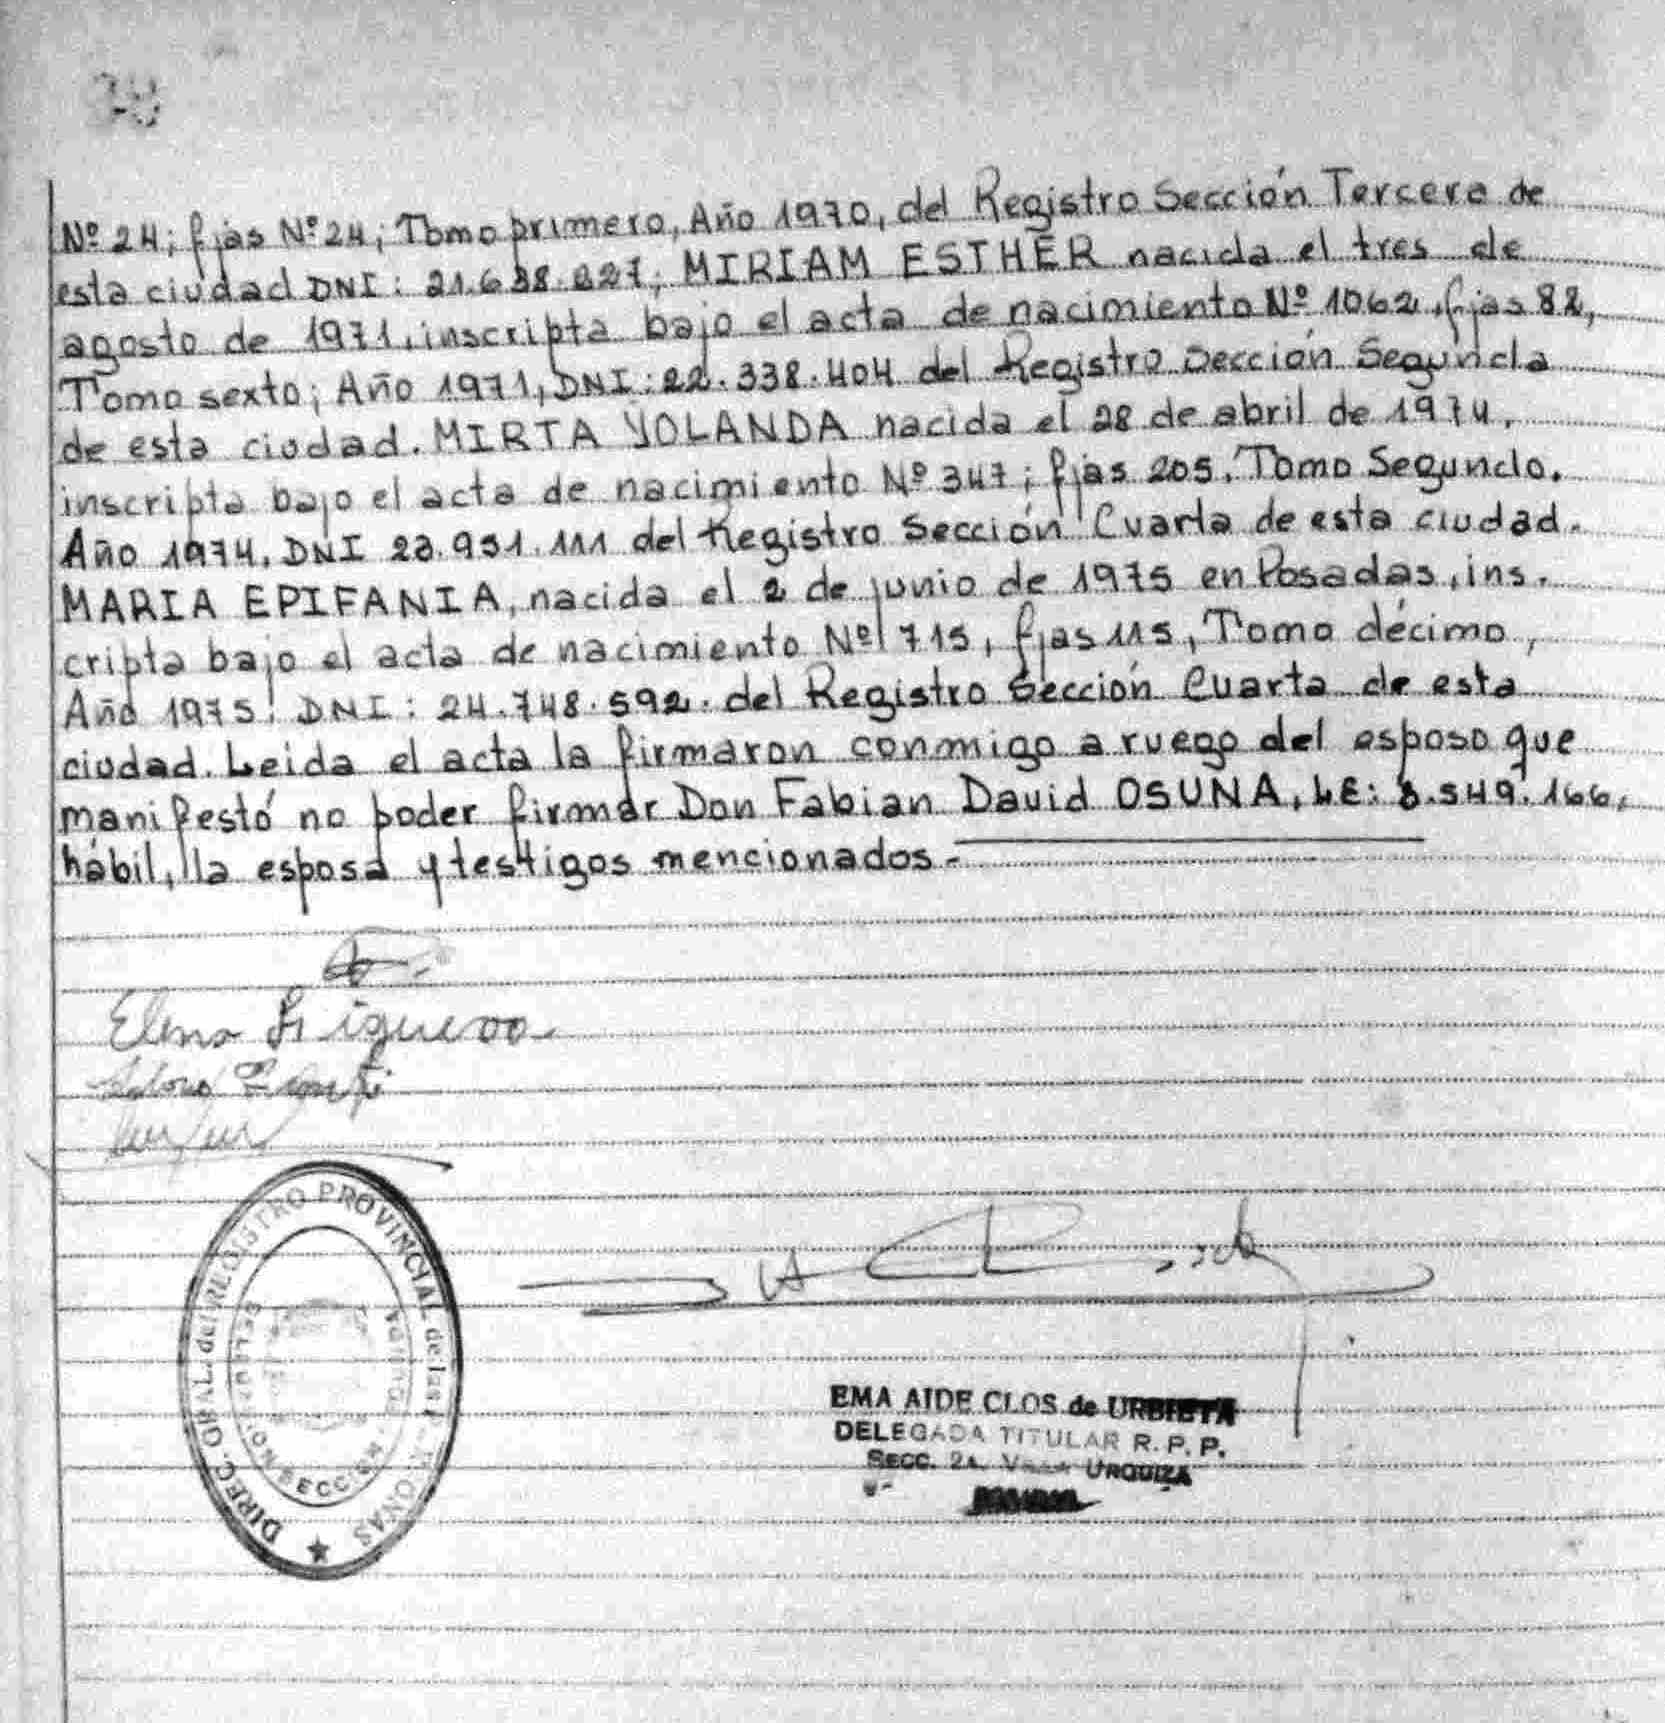 Nº 24; fjas Nº 24; Tomo primero, Año 1970, del Registro Sección Tercera de
esta ciudad DNI: 21.638.827; MIRIAM ESTHER nacida el tres de
agosto de 1971, inscripta bajo el acta de nacimiento Nº 1062, fjas 82,
Tomo sexto; Año 1971, DNI: 22.338.404 del Registro Sección Segunda
de esta ciudad. MIRTA YOLANDA nacida el 28 de abril de 1974,
inscripta bajo el acta de nacimiento Nº 347; fjas 205, Tomo Segundo,
Año 1974, DNI 23.951.111 del Registro Sección Cuarta de esta ciudad.
MARIA EPIFANIA, nacida el 2 de junio de 1975 en Posadas, ins.
cripta bajo el acta de nacimiento Nº 715, fjas 115, Tomo décimo,
Año 1975; DNI: 24.748.592. del Registro Sección Cuarta de esta
ciudad. Leida el acta la firmaron conmigo a ruego del esposo que
manifestó no poder firmar Don Fabian David OSUNA, LE: 8.549.166,
hábil, la esposa y testigos mencionados.-
Elena Figueroa
DIREC. GRAL. del REGISTRO PROVINCIAL de las PERSONAS
SECCION
EMA AIDE CLOS de URBIETA
DELEGADA TITULAR R. P. P.
SECC. 2a. VILLA URQUIZA